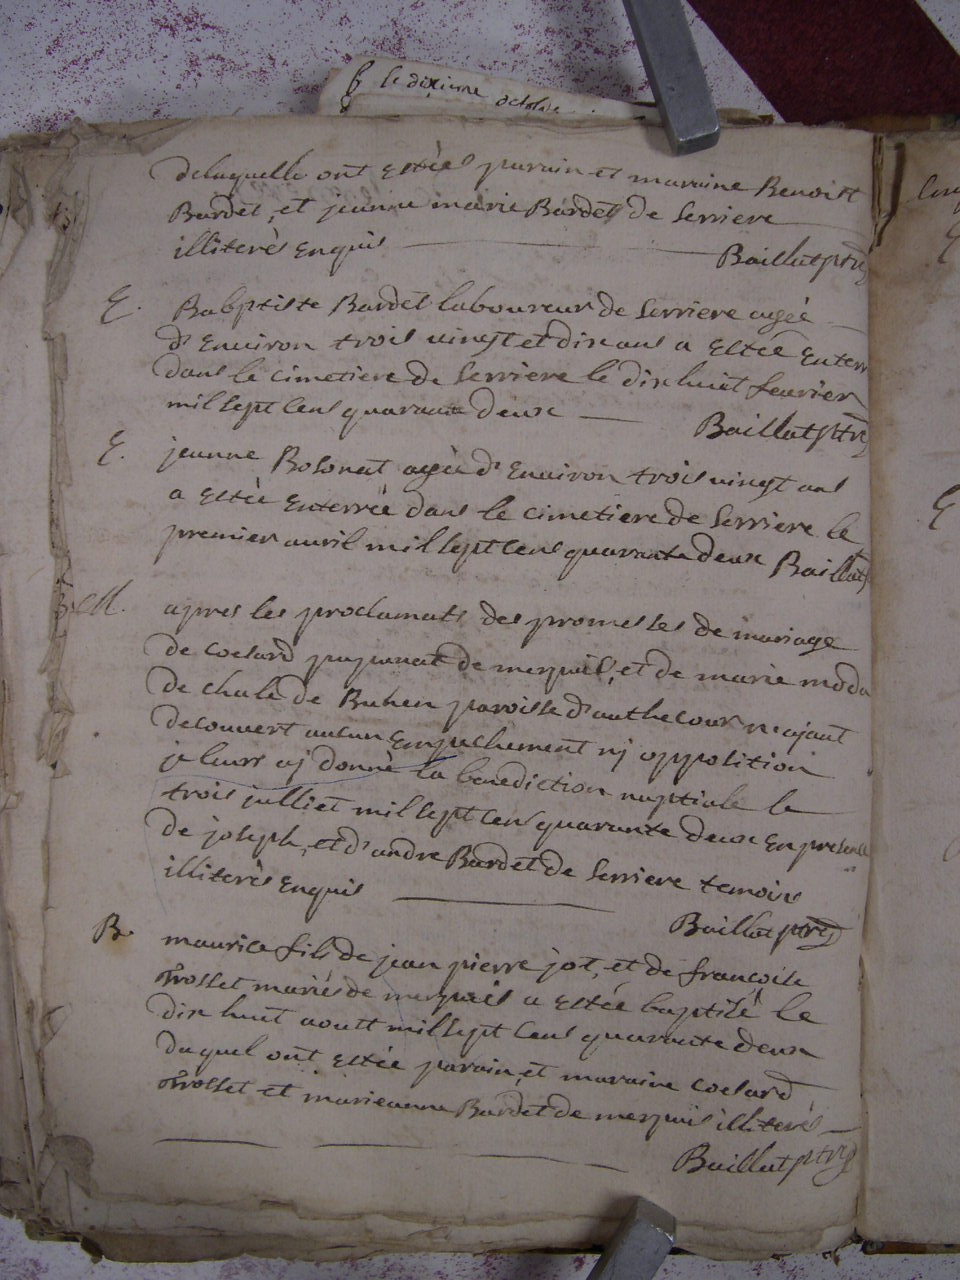 le dixieme octobre
delaquelle ont estées parain et maraine Benoist
Bardet, et jeanne marie Bardet de Serriere
illiterés enquis Baillat ptre
E. Babptiste Bardet laboureur de Serriere agée
d'environ trois vingt et dix ans a estée enterr
dans le cimetiere de Serriere le dix huit feuvrier
mil sept cens quarante deux Baillat ptre
E. jeanne agée d'environ trois vingt ans
a estée enterrée dans le cimetiere de Serriere le
premier avril mil sept cens quarante deux Baillat
M. apres les proclamats des promesses de mariage
de coelard de merpuis, et de marie
de chale de Ruhen paroisse d'authecour n'ajant
decouvert aucun empechement nj opposition
je leurs aj donné la benediction nuptiale le
trois julliet mil sept cens quarante deux en presence
de joseph, et d'andre Bardet de Serriere temoins
illiterés enquis Baillat ptre
B. maurice fils de jean pierre jot, et de francoise
trosset mariés de merpuis a estée baptisé le
dix huit aoust mil sept cens quarante deux
duquel ont estée parain, et maraine coelard
trosset et marieanne Bardet de merpuis illiterés
Baillat ptre